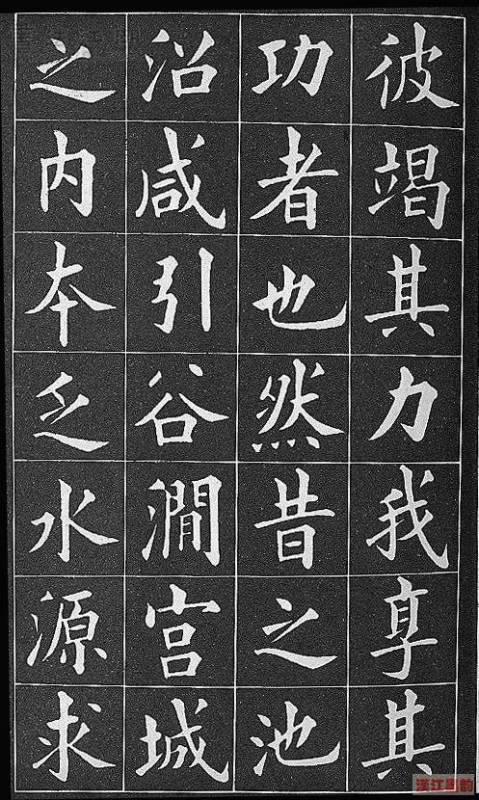 彼竭其力我享其
功者也然昔之池
沼咸引谷澗宮城
之内本乏水源求
漢江剧韵